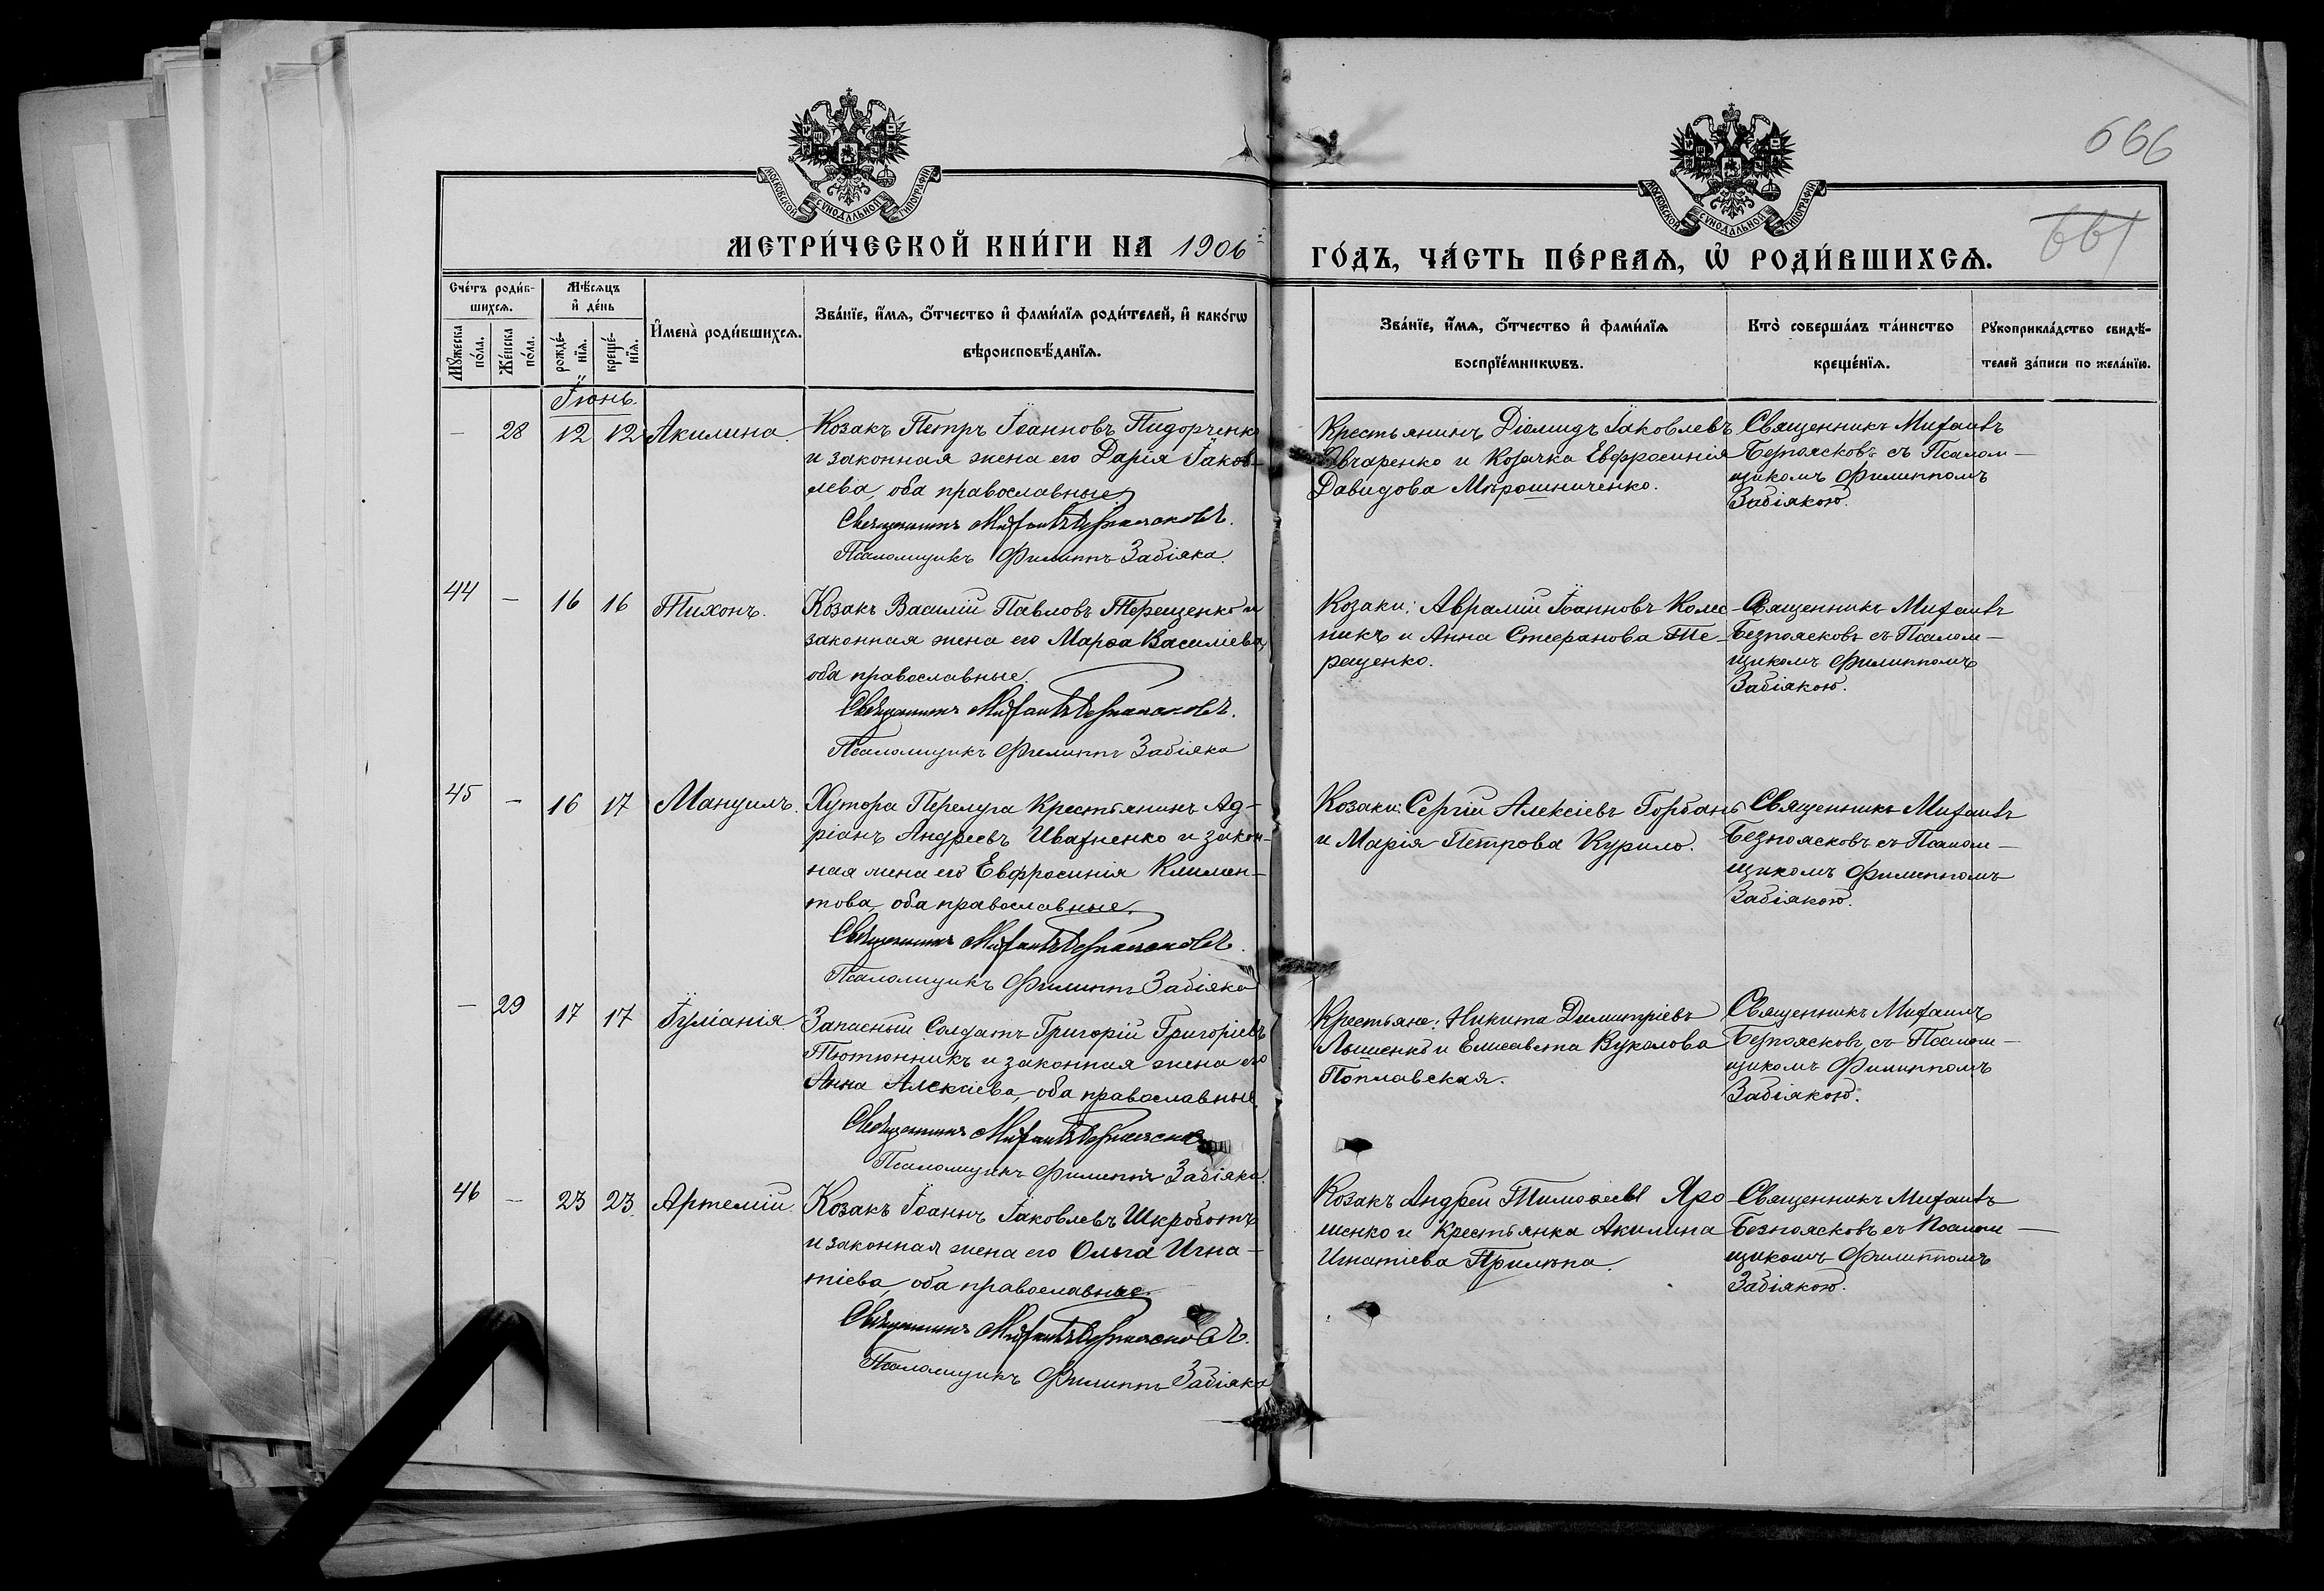 666
661
МОСКОВСКОЙ СѴНОДАЛЬНОЙ ТИПОГРАФІИ
МОСКОВСКОЙ СѴНОДАЛЬНОЙ ТИПОГРАФІИ
МЕТРИ́ЧЕСКОЙ КНИ́ГИ НА 1906й
ГО́ДЪ, ЧА́СТЬ ПЕ́РВАѦ, Ѡ҆ РОДИ́ВШИХСѦ.
Сче́тъ роди́в-
шихсѧ.
Мꙋ́жеска по́ла.
Же́нска по́ла.
Мѣ́сѧцъ
и҆ де́нь
рожде́-
нїѧ.
креще́-
нїѧ.
И҆мена̀ роди́вшихсѧ.
Зва́нїе, и҆́мѧ, ѻ҆́тчество и҆ фами́лїѧ роди́телей, и҆ како́гѡ
вѣроисповѣ́данїѧ.
Зва́нїе, и҆́мѧ, ѻ҆́тчество и҆ фами́лїѧ
воспрїе́мникѡвъ.
Кто̀ соверша́лъ та́инство
креще́нїѧ.
Рꙋкоприкла́дство свидѣ́-
телей за́писи по жела́нїю.
Іюнь.
— 28 12 12 Акилина.
Козакъ Петръ Іоанновъ Пидорченко
и законная жена его Дарія Іаков-
лева, оба православные.
Священникъ Михаилъ Безпоясковъ.
Псаломщикъ Филиппъ Забіяка.
Крестьянинъ Діомидъ Іаковлевъ
Овчаренко и Козачка Евфросинія
Давидова Мирошниченко.
Священникъ Михаилъ
Безпоясковъ съ Псалом-
щикомъ Филиппомъ
Забіякою.
44 — 16 16 Тихонъ.
Козакъ Василій Павловъ Терещенко и
законная жена его Марѳа Василіева,
оба православные.
Священникъ Михаилъ Безпоясковъ.
Псаломщикъ Филиппъ Забіяка
Козаки: Аврамій Іоанновъ Колес-
никъ и Анна Стефанова Те-
рещенко.
Священникъ Михаилъ
Безпоясковъ съ Псалом-
щикомъ Филиппомъ
Забіякою.
45 — 16 17 Мануилъ.
Хутора Перелуга Крестьянинъ Ад-
ріанъ Андреевъ Ивахненко и закон-
ная жена его Евфросинія Климен-
това, оба православные.
Священникъ Михаилъ Безпоясковъ.
Псаломщикъ Филиппъ Забіяка
Козаки: Сергій Алексіевъ Горбань
и Марія Петрова Курило.
Священникъ Михаилъ
Безпоясковъ съ Псалом-
щикомъ Филиппомъ
Забіякою.
— 29 17 17 Іуліанія
Запасный Солдатъ Григорій Григоріевъ
Тютюнникъ и законная жена его
Анна Алексіева, оба православные.
Священникъ Михаилъ Безпоясковъ
Псаломщикъ Филиппъ Забіяка.
Крестьяне: Никита Димитріевъ
и Елисавета Вуколова
Поплавская.
Священникъ Михаилъ
Безпоясковъ съ Псалом-
щикомъ Филиппомъ
Забіякою.
46 — 23 23 Артемій.
Козакъ Іоаннъ Іаковлевъ Шкроботъ
и законная жена его Ольга Игна-
тіева, оба православные.
Священникъ Михаилъ Безпоясковъ.
Псаломщикъ Филиппъ Забіяка
Козакъ Андрей Тимоѳеевъ Яро-
шенко и Крестьянка Акилина
Игнатіева Прилипа.
Священникъ Михаилъ
Безпоясковъ съ Псалом-
щикомъ Филиппомъ
Забіякою.